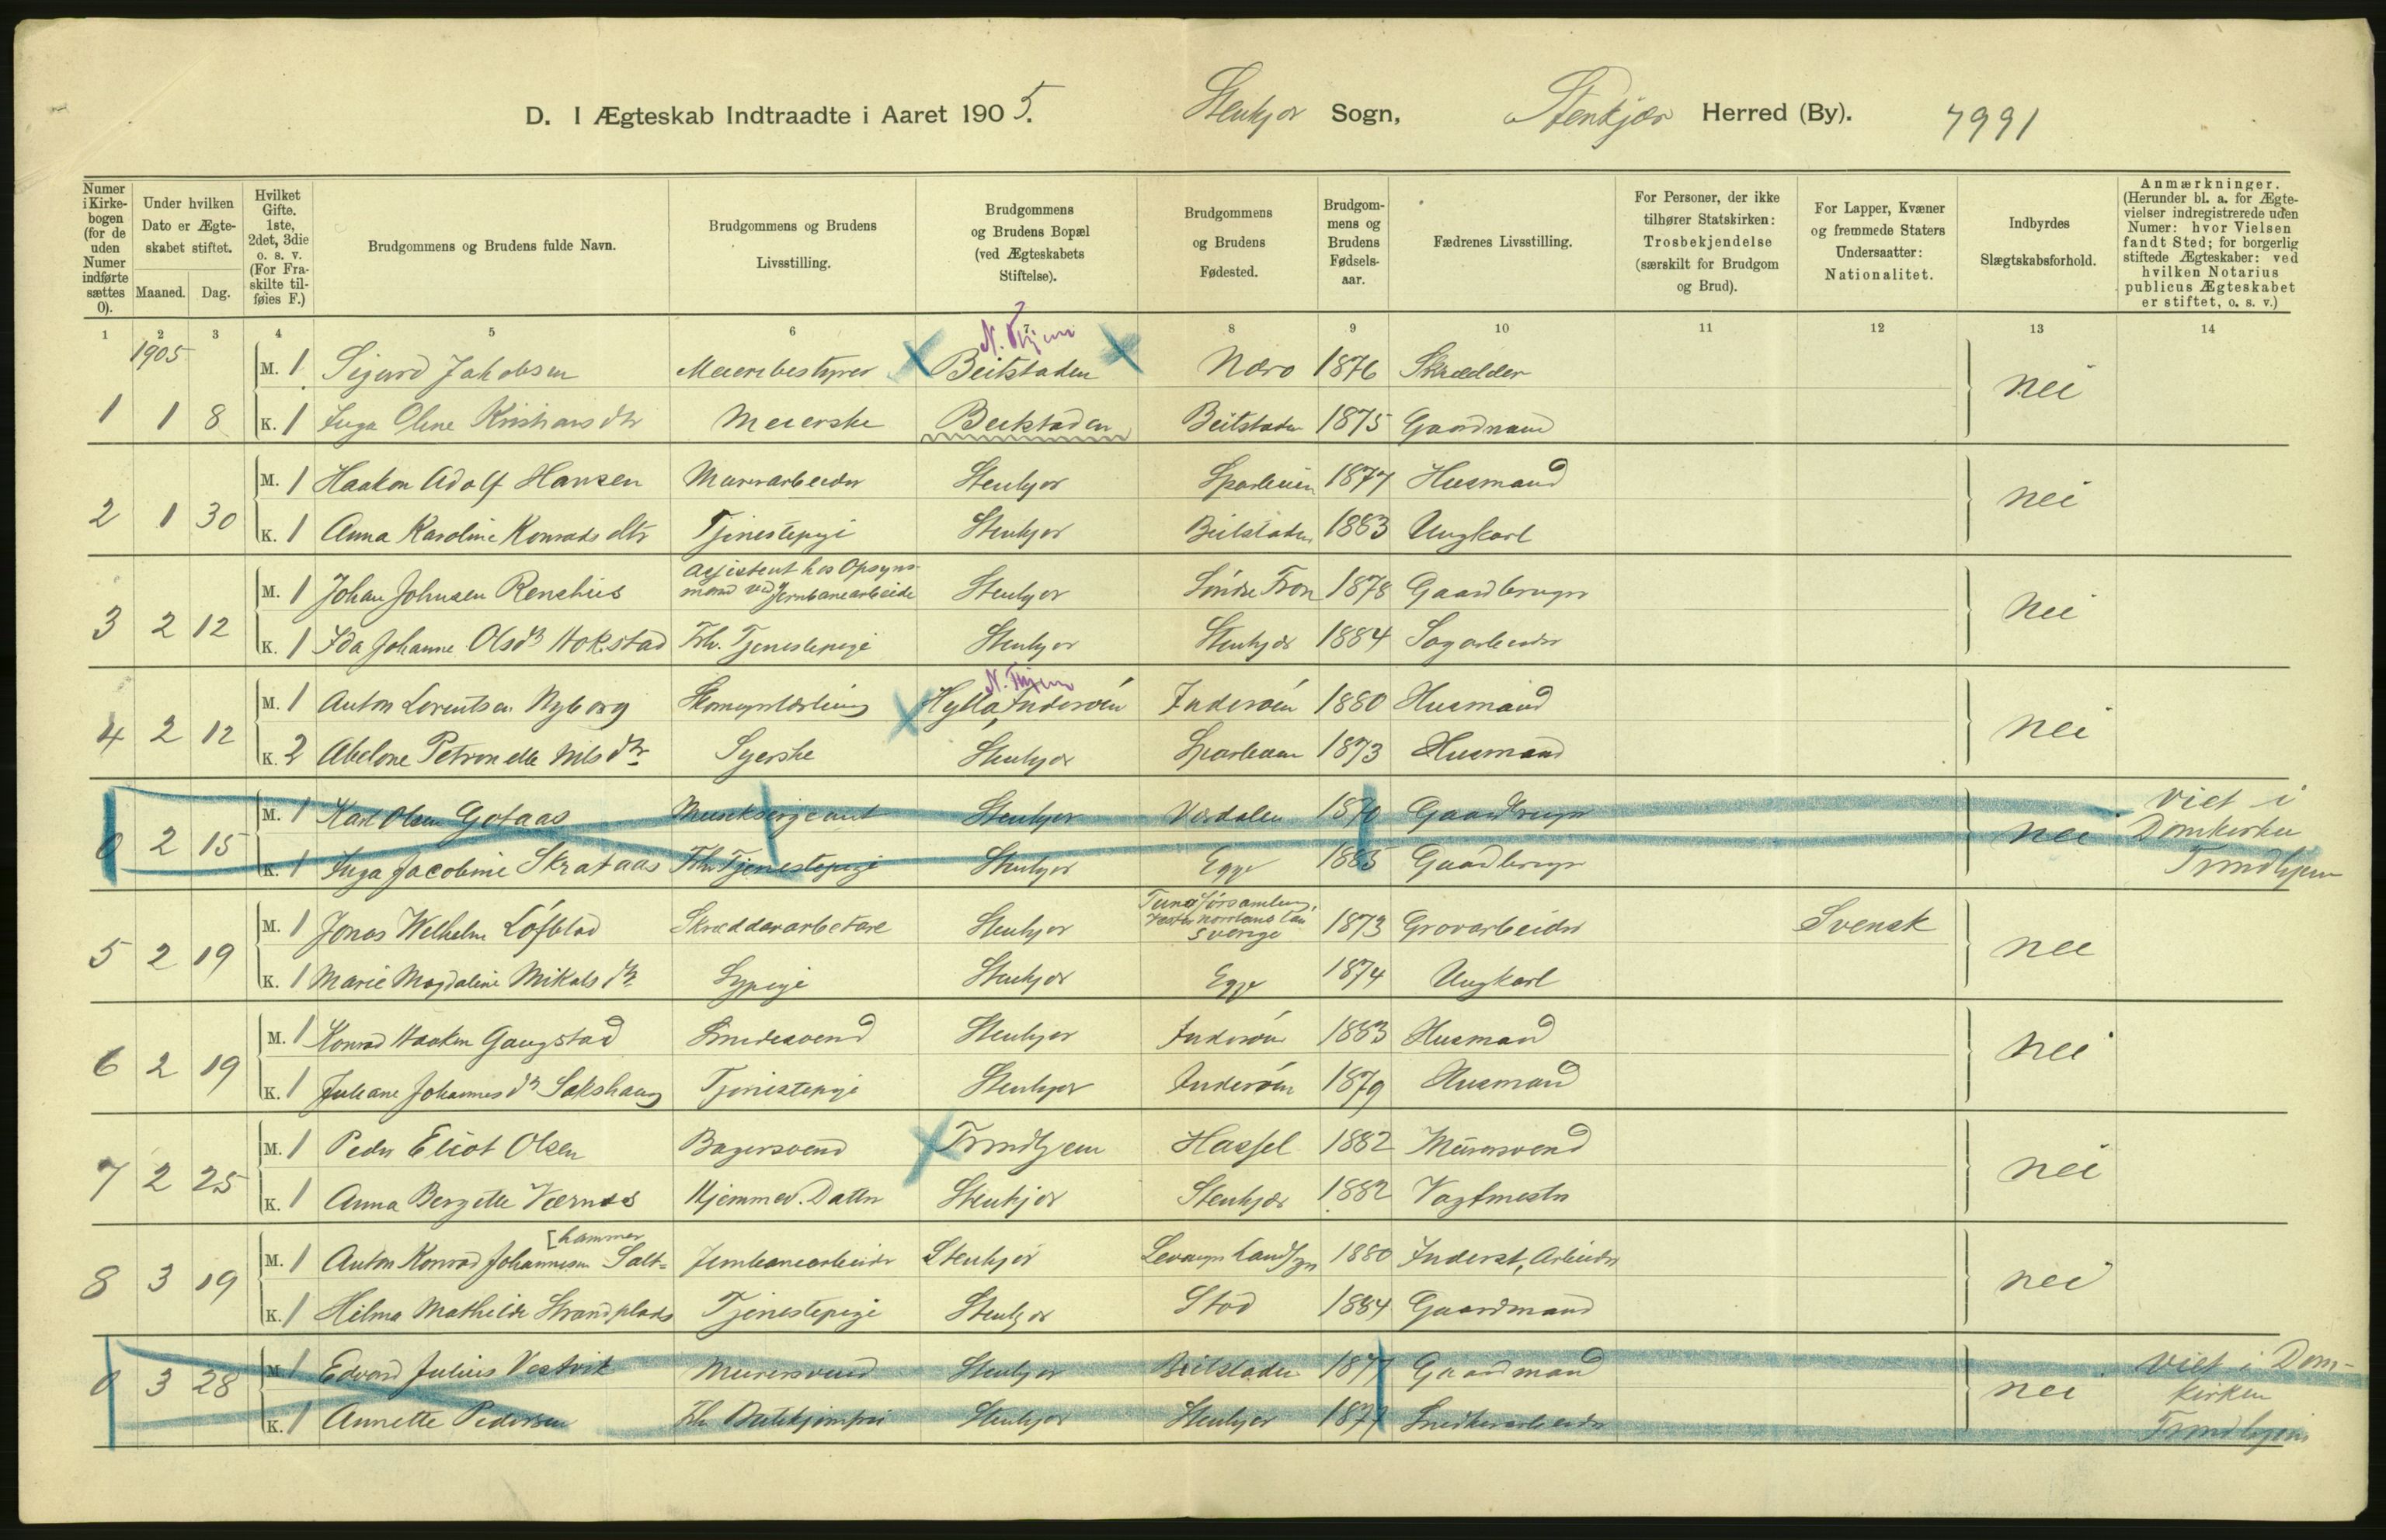 D. I Ægteskab Indtraadte i Aaret 1905. Stenkjær Sogn, Stenkjær Herred (By). 7991
Numer i Kirkebogen (for de uden Numer indførte sættes 0).
Under hvilken Dato er Ægteskabet stiftet.
Maaned. Dag.
Hvilket Gifte. 1ste, 2det, 3die o. s. v. (For Fraskilte tilføies F.)
Brudgommens og Brudens fulde Navn.
Brudgommens og Brudens Livsstilling.
Brudgommens og Brudens Bopæl (ved Ægteskabets Stiftelse).
Brudgommens og Brudens Fødested.
Brudgommens og Brudens Fødselsaar.
Fædrenes Livsstilling.
For Personer, der ikke tilhører Statskirken: Trosbekjendelse (særskilt for Brudgom og Brud).
For Lapper, Kvæner og fremmede Staters Undersaatter: Nationalitet.
Indbyrdes Slægtskabsforhold.
Anmærkninger. (Herunder bl. a. for Ægtevielser indregistrerede uden Numer: hvor Vielsen fandt Sted; for borgerlig stiftede Ægteskaber: ved hvilken Notarius publicus Ægteskabet er stiftet, o. s. v.)
1 2 3 4 5 6 7 8 9 10 11 12 13 14
1905
N. Thjem
M. 1 Sigurd Jakobsen Meieribestyrer Beitstaden Nærø 1876 Skrædder nei
1 1 8 K. 1 Inga Oline Kristiansdtr Meierske Beitstaden Beitstaden 1875 Gaardmand
M. 1 Haakon Adolf Hansen Murerarbeider Stenkjær Sparbuen 1877 Husmand nei
2 1 30 K. 1 Anna Karoline Konradsdtr Tjenestepige Stenkjær Beitstaden 1883 Ungkarl
Assistent hos Opsyns-
mand ved Jernbanearbeide
M. 1 Johan Johnsen Renshus Stenkjær Søndre Fron 1878 Gaardbruger nei
3 2 12 K. 1 Ida Johanne Olsdtr Hokstad Fhv. Tjenestepige Stenkjær Stenkjær 1884 Sagarbeider
N. Thjem
M. 1 Anton Lorentsen Nyborg Skomagerlærling Hylla, Inderøen Inderøen 1880 Husmand nei
4 2 12 K. 2 Abelone Petronelle Nilsdtr Syerske Stenkjær Sparbuen 1873 Husmand
M. 1 Karl Olsen Gotaas Musiksergeant Stenkjær Værdalen 1870 Gaardbruger nei viet i
0 2 15 Domkirken
K. 1 Inga Jacobine Skrataas Fhv. Tjenestepige Stenkjær Egge 1885 Gaardbruger Trondhjem
M. 1 Jonas Welhelm Löfblad Skræddararbetare Stenkjær Sverige 1873 Grovarbeider Svensk nei
5 2 19 K. 1 Marie Magdaline Mikalsdtr Sypige Stenkjær Egge 1874 Ungkarl
M. 1 Konrad Haakon Gangstad Smedesvend Stenkjær Inderøen 1883 Husmand nei
6 2 19 K. 1 Juliane Johannesdtr Sakshaug Tjenestepige Stenkjær Inderøen 1879 Husmand
M. 1 Peder Eliot Olsen Bagersvend Trondhjem Hassel 1882 Murersvend nei
7 2 25 K. 1 Anna Bergitte Værnes Hjemmev. Datter Stenkjær Stenkjær 1882 Vagtmester
[hammer
M. 1 Anton Konrad Johannesen Salt- Jernbanearbeider Stenkjær Levanger Landsogn 1880 Inderst, Arbeider nei
8 3 19 K. 1 Hilma Mathilde Strandplads Tjenestepige Stenkjær Stod 1884 Gaardmand
M. 1 Edvard Julius Vestvik Murersvend Stenkjær Beitstaden 1877 Gaardmand nei viet i Dom-
0 3 28 kirken
K. 1 Annette Pedersen Fhv Butikjomfru Stenkjær Stenkjær 1877 Snedkerarbeider Trondhjem